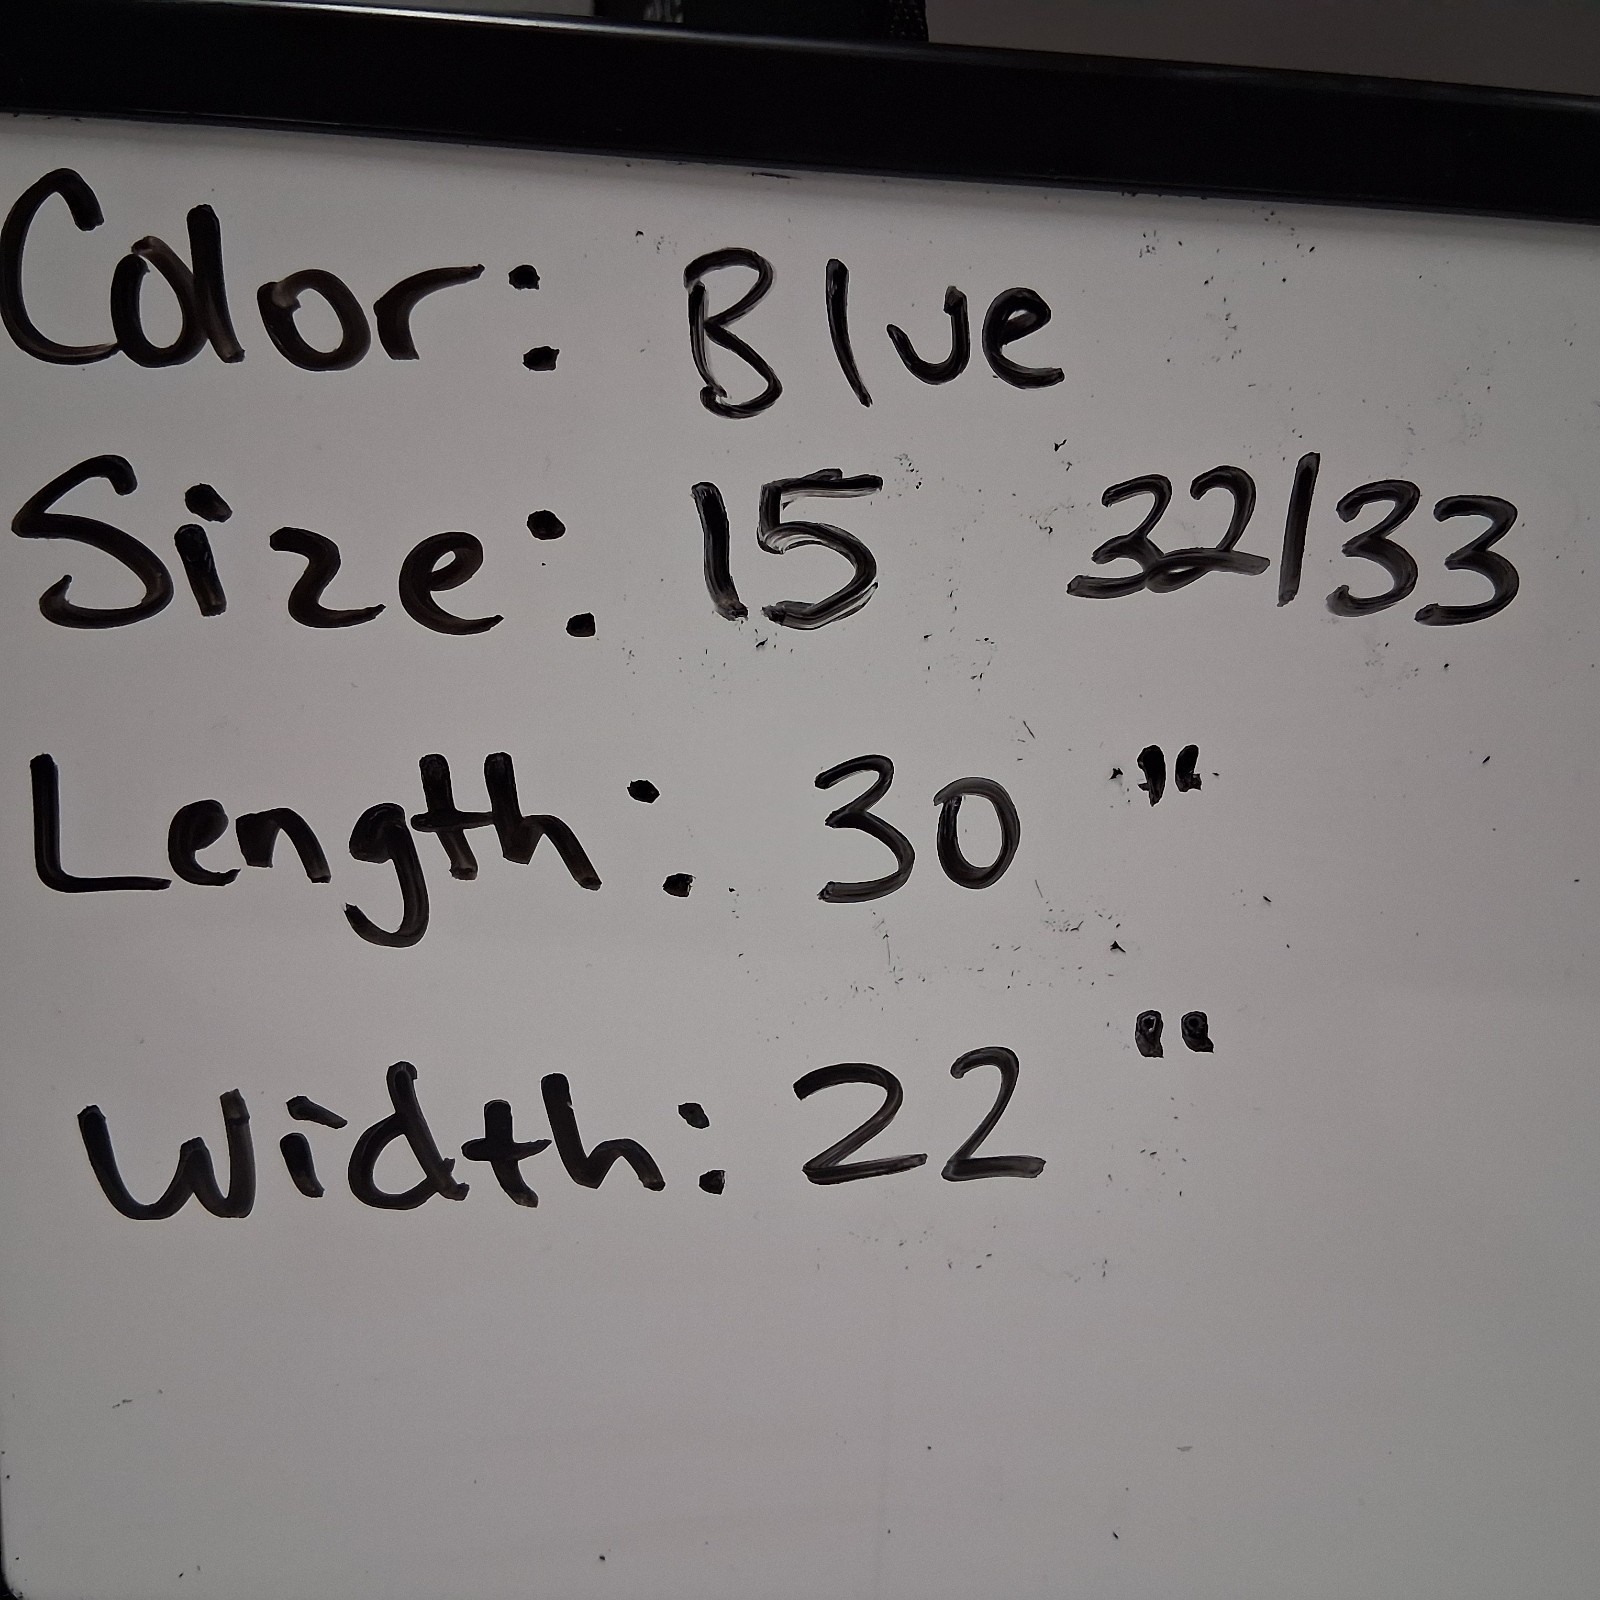 Color: Blue
Size: 15 32/33
Length: 30 "
Width: 22 "